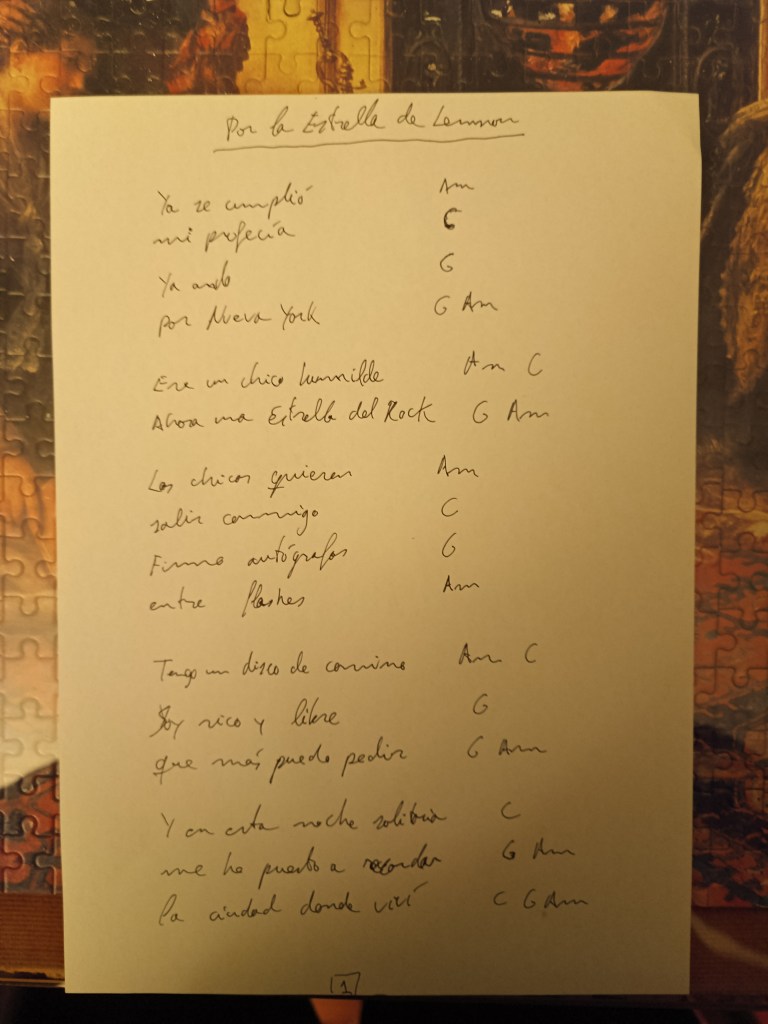 Por la Estrella de Lennon
Ya se cumplió Am
mi profecía C
Ya ando G
por Nueva York G Am
Era un chico humilde Am C
Ahora una Estrella del Rock G Am
Las chicas quieren Am
salir conmigo C
Firmo autógrafos G
entre flashes Am
Tengo un disco de camino Am C
Soy rico y libre G
que más puedo pedir G Am
Y en esta noche solitaria C
me he puesto a recordar G Am
la ciudad donde viví C G Am
1